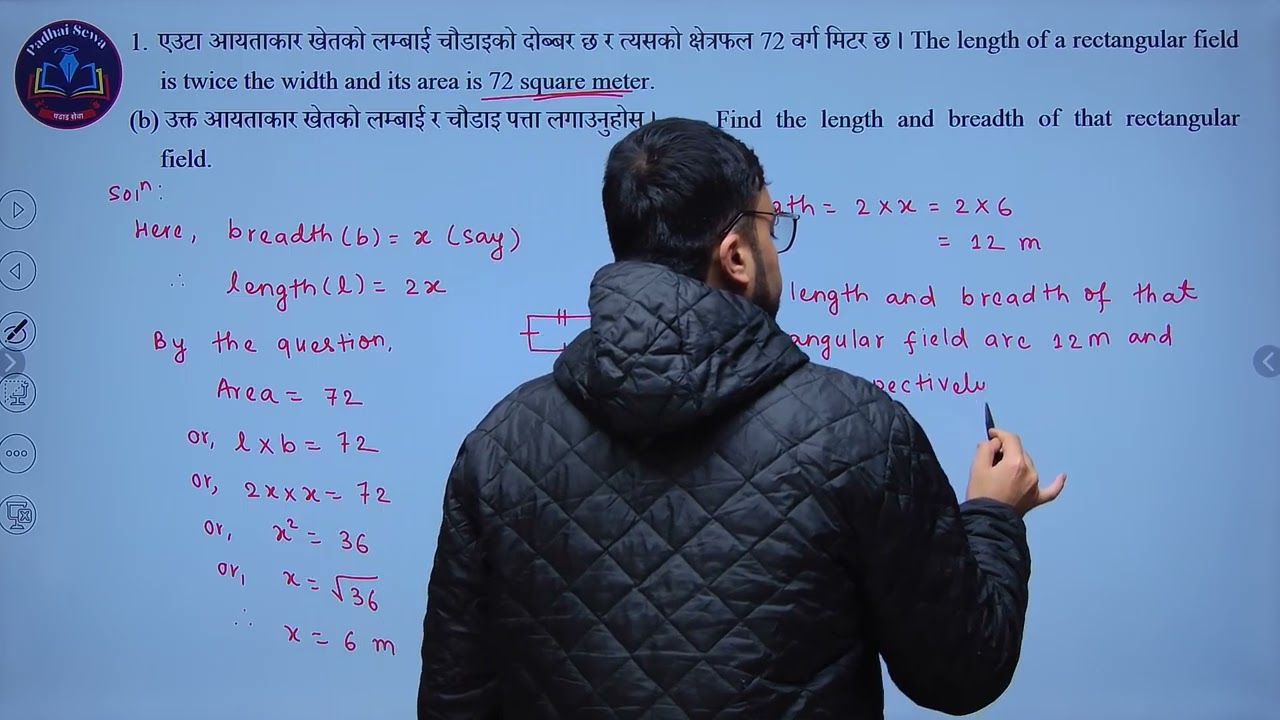 Padhai Sewa
पढाइ सेवा
1. एउटा आयताकार खेतको लम्बाई चौडाइको दोब्बर छ र त्यसको क्षेत्रफल 72 वर्ग मिटर छ । The length of a rectangular field
is twice the width and its area is 72 square meter.
(b) उक्त आयताकार खेतको लम्बाई र चौडाइ पत्ता लगाउनुहोस् । Find the length and breadth of that rectangular
field.
Solⁿ:
Here, breadth (b) = x (say)
∴ length (l) = 2x
By the question,
Area = 72
or, l × b = 72
or, 2x × x = 72
or, x² = 36
or, x = √36
∴ x = 6 m
= 2 × x = 2 × 6
= 12 m
length and breadth of that
field are 12 m and